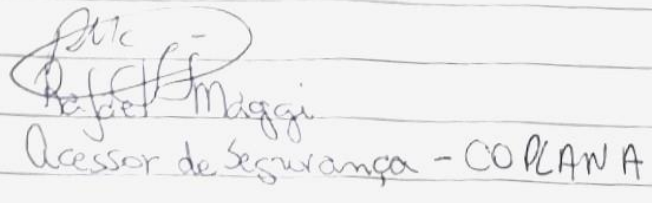 Rafael Maggi
Acessor de Segurança - COPLANA